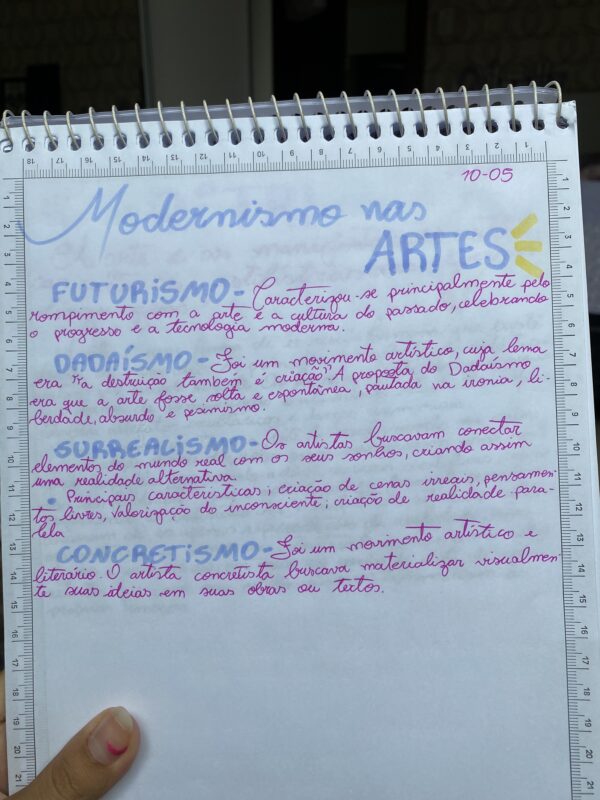 10-05
Modernismo nas
ARTES
FUTURISMO - Caracterizou-se principalmente pelo
rompimento com a arte e a cultura do passado, celebrando
o progresso e a tecnologia moderna.
DADAÍSMO - Foi um movimento artístico, cuja lema
era "a destruição também é criação". A proposta do Dadaísmo
era que a arte fosse solta e espontânea, pautada na ironia, li-
berdade, absurdo e pessimismo.
SURREALISMO - Os artistas buscavam conectar
elementos do mundo real com os seus sonhos, criando assim
uma realidade alternativa.
• Principais características; criação de cenas irreais, pensamen-
tos livres, valorização do inconsciente; criação de realidade para-
lela
CONCRETISMO - Foi um movimento artístico e
literário. O artista concretista buscava materializar visualmen-
te suas ideias em suas obras ou textos.